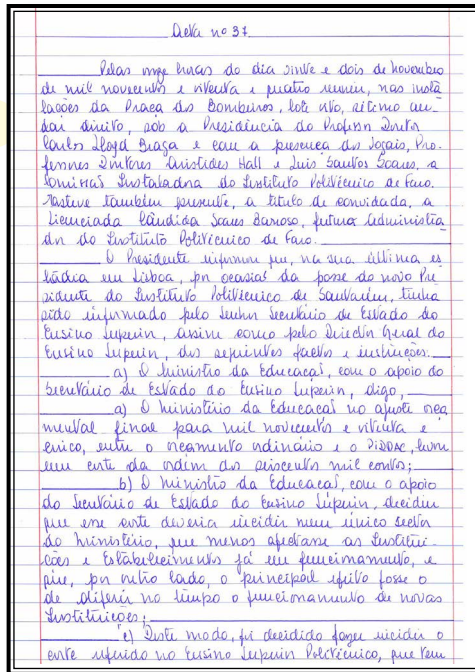 Acta nº 37
Pelas onze horas do dia vinte e dois de Novembro
de mil novecentos e oitenta e quatro reuniu, nas insta
lações da Praça dos Bombeiros, lote oito, sétimo an-
dar direito, sob a Presidência do Professor Doutor
Carlos Lloyd Braga e com a presença dos Vogais, Pro-
fessores Doutores Aristides Hall e Luís Santos Soares, a
Comissão Instaladora do Instituto Politécnico de Faro.
Esteve também presente, a título de convidada, a
Licenciada Cândida Soares Barroso, futura Administra
dora do Instituto Politécnico de Faro.
O Presidente informou que, na sua última es
tadia em Lisboa, por ocasião da posse do novo Pre
sidente do Instituto Politécnico de Santarém, tinha
sido informado pelo Senhor Secretário de Estado do
Ensino Superior, assim como pelo Director Geral do
Ensino Superior, dos seguintes factos e instruções:
a) O Ministro da Educação, com o apoio do
Secretário de Estado do Ensino Superior, digo,
a) O Ministério da Educação no ajuste orça
mental final para mil novecentos e oitenta e
cinco, entre o orçamento ordinário e o PIDDAC, houve
um corte da ordem dos seiscentos mil contos;
b) O Ministro da Educação, com o apoio
do Secretário de Estado do Ensino Superior, decidiu
que esse corte deveria incidir num único sector
do Ministério, que menos afectasse as Institui-
ções e Estabelecimentos já em funcionamento, e
que, por outro lado, o principal efeito fosse o
de diferir no tempo o funcionamento de novas
Instituições;
c) Deste modo, foi decidido fazer incidir o
corte referido no Ensino Superior Politécnico, que tem